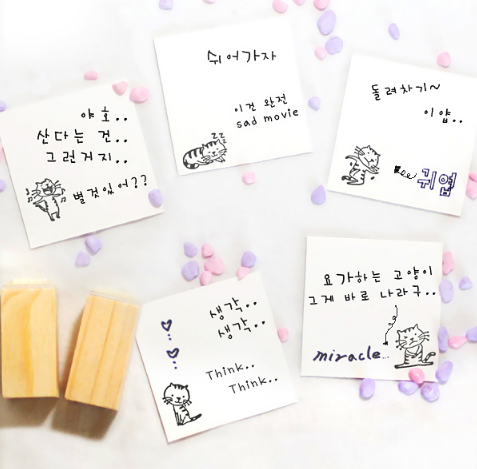 쉬어가자
이건 완전
sad movie
zz
돌려차기~
이얍..
귀엽
야호..
산다는 건..
그런거지..
별것있어??
생각..
생각..
Think..
Think..
요가하는 고양이
그게 바로 나라구..
miracle...